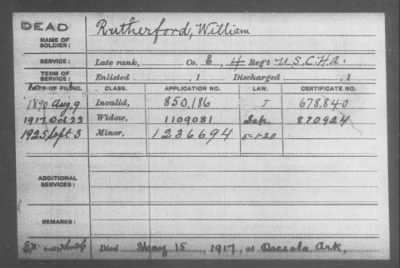 DEAD
NAME OF SOLDIER: Rutherford, William
SERVICE: Late rank, Co. E, 4 Reg't U.S.C.H.A.
TERM OF SERVICE: Enlisted , 1 Discharged , 1
DATE OF FILING. CLASS. APPLICATION NO. LAW. CERTIFICATE NO.
1890 Aug 9 Invalid, 850,186 J 678,840
1917 Oct 23 Widow, 1109081 870924
1925 Sept 3 Minor, 1236694 5-1-20
ADDITIONAL SERVICES:
REMARKS:
Died May 15, 1917, at Osceola Ark,